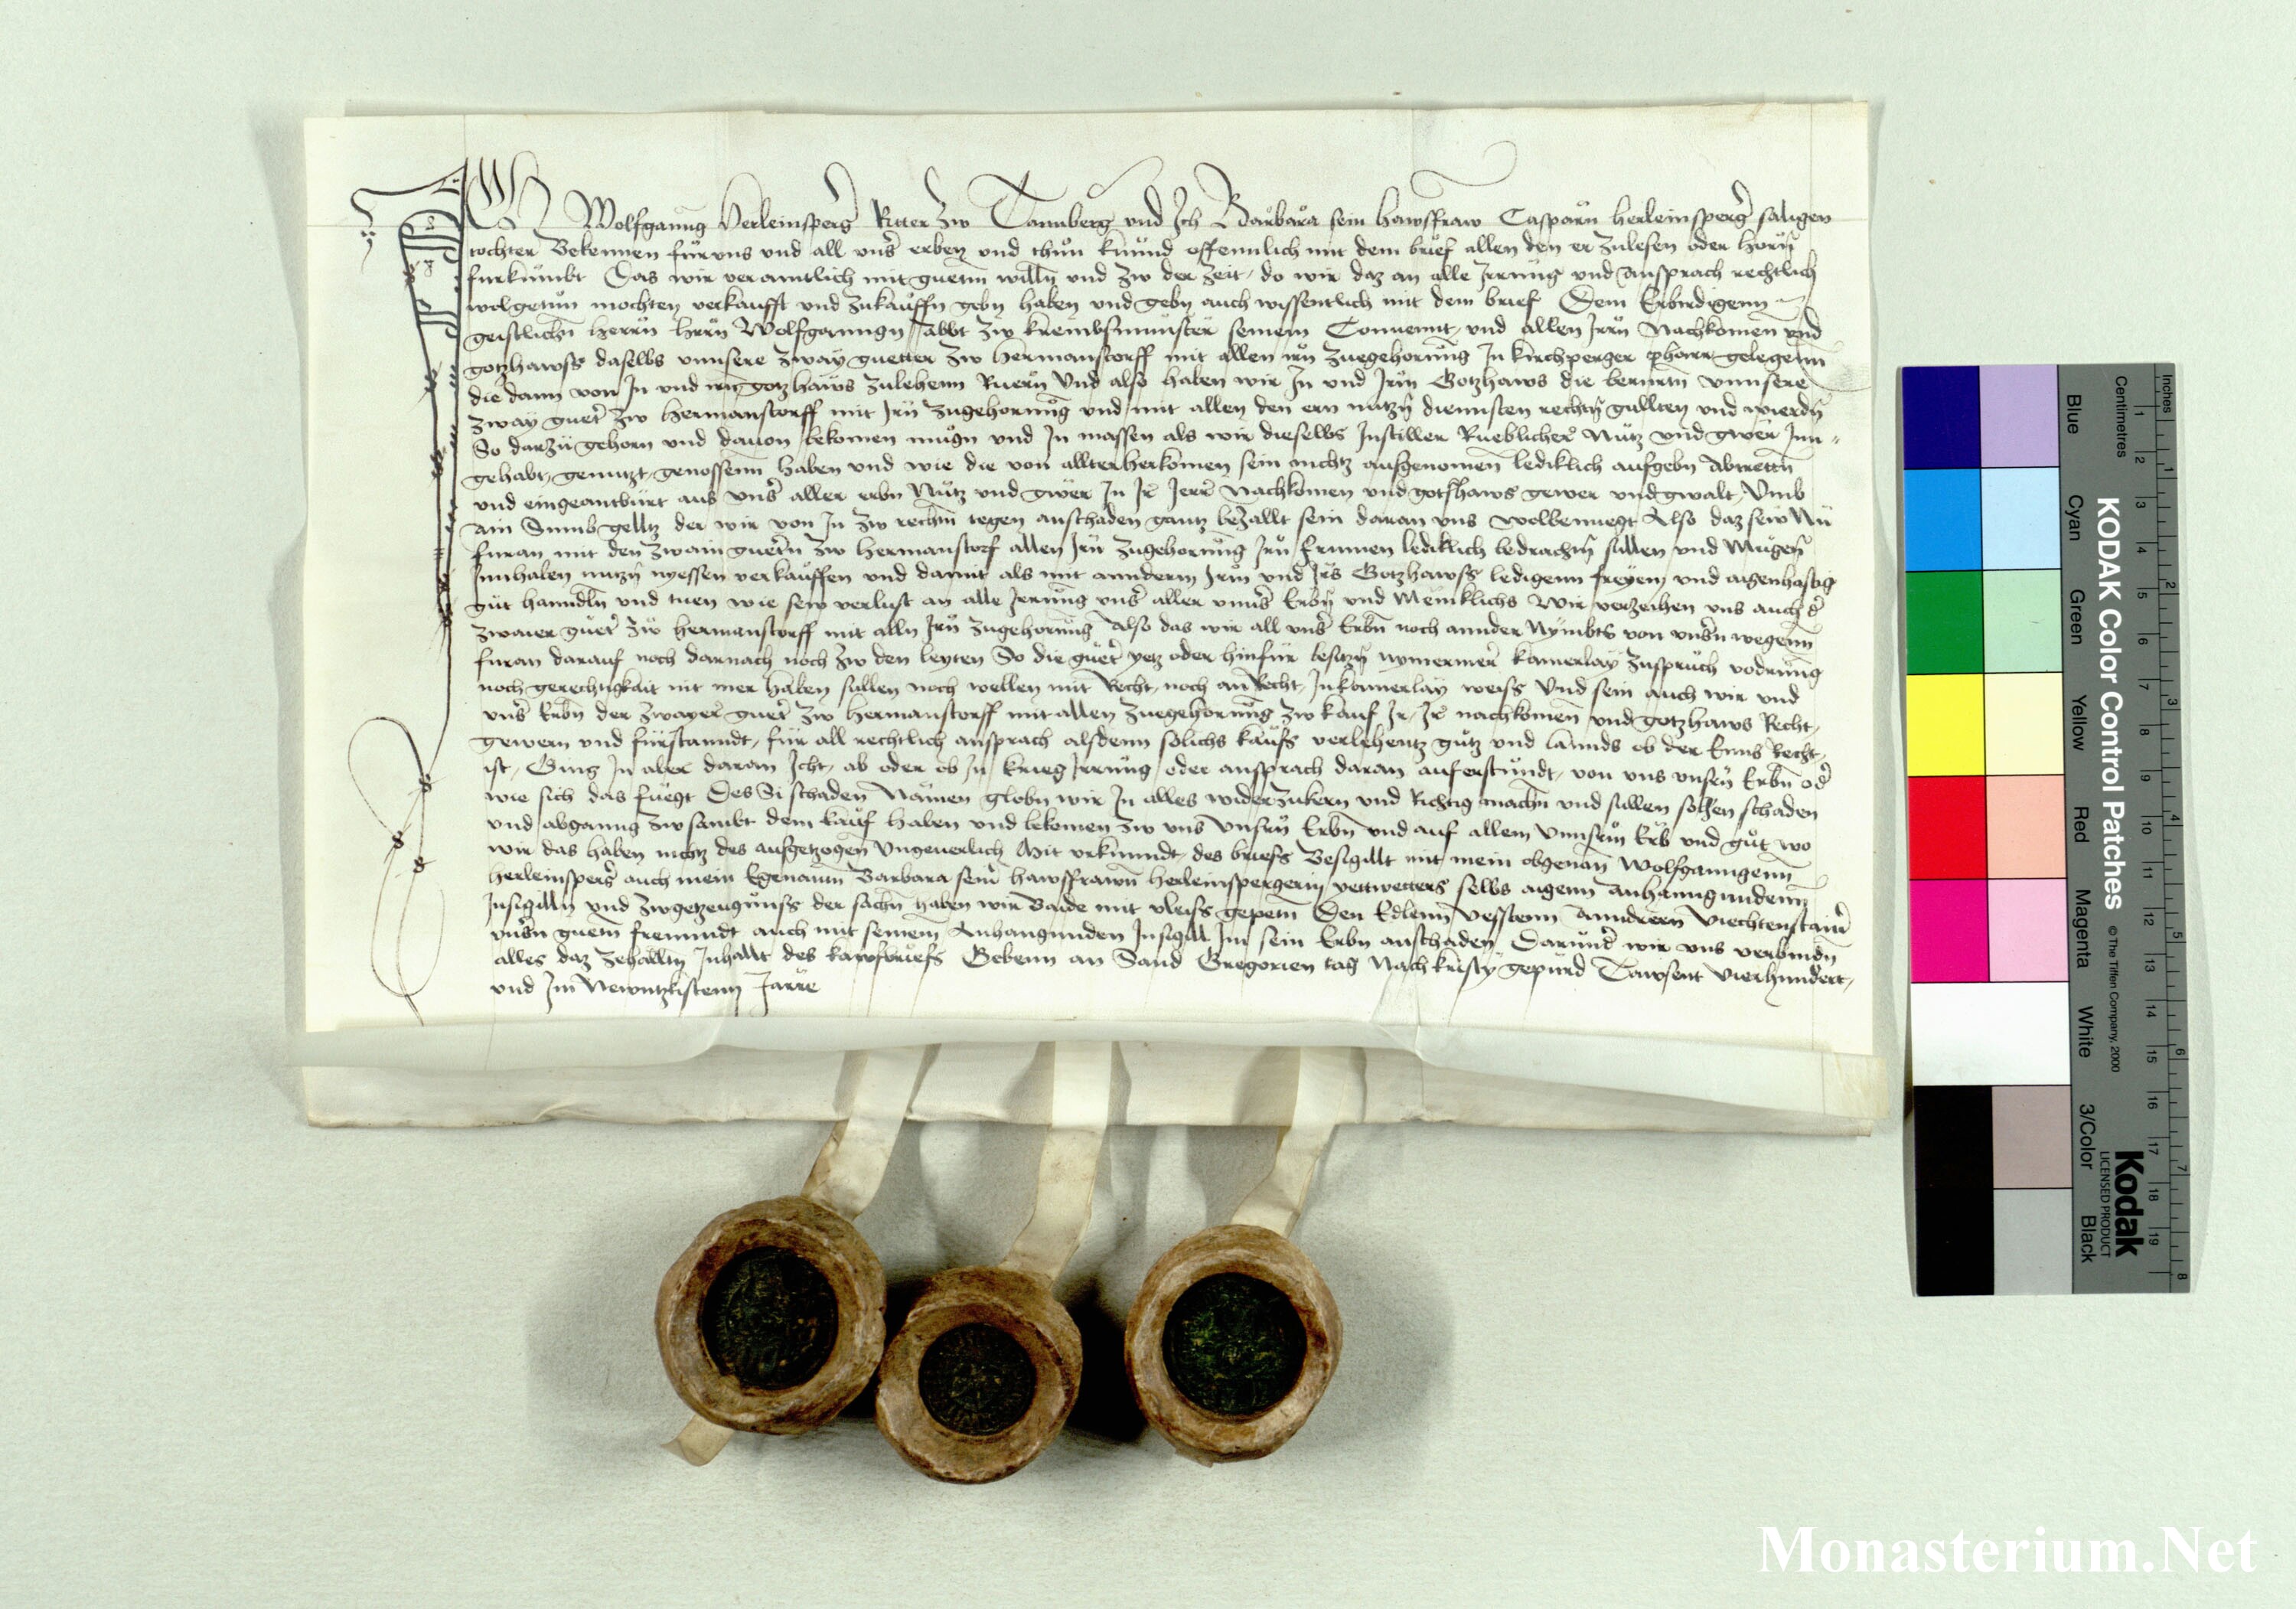 ICH Wolfganng Herleinsperg̃ Ritter zw Tannberg und Ich Barbara sein hawsfraw Casparn̈ herleinsperg̃ saligen
tochter Bekennen für uns und all unser̃ erben und thün kuund offennlich mit dem brief allen den er zulesen oder horn̄
furkumbt Das wir veraintlich mit guetm willn̄ und zw der zeit, do wir daz an alle Irrung und ansprach rechtlich
wolgetün mochten verkaufft und zukauffn gebn̄ haben und gebn̄ auch wissentlich mit dem brief Dem Erbirdigenn
geistlichn̄ herrn̈ hrrn̈ Wolfganngn̄ Abbt zw krembsmünster seinem Conuennt, und allen Irn̈ Nachkomen und
gotzhawss daselbs unnsere zway guetter zw hermanstorff mit allen irn̈ zuegehorung In kirchperger pharr gelegenn
die dann von In und irm gotzhaws zulehenn Ruern̈ Und also haben wir In und Irn̈ Gotzhaws die berurtn̄ unnsere
zway guet̃ zw hermanstorff mit Irn̈ zugehorung und mit allen den ern nutzn̄ diennsten rechtn̄ gullten und wierdn̄
So darzü gehorn und dauon bekomen mugn̄ und In massen als wir dieselbs Instiller Rueblicher̃ Nutz und gwer Inn-
gehabt, genutzt, genossenn haben und wie die von allterherkomen sein nichtz ausgenomen lediklich aufgebn̄ Abtrettn̄
und eingeantburt aus unser̃ aller erbn Nütz und gwer In Ir̃ Ierr̃ Nachkomen und gotshaws gewer und gwalt, Umb
ain Summ gelltz der wir von In zw rechtn̄ tegen anschaden gantz bezallt sein daran uns wolbenuegt Also daz sew Nü
furan mit den zwain guetr̃n zw hermanstorf allen Irn̈ zugehorung Irn̈ frumen lediklich bedrachtn̄ sullen und Mugen̄
Innhaben nutzn̄ nyessen verkauffen und damit als mit annderm Irn̈ und Irs Gotzhawss ledigenn freyem und aigenhaftig
gut hanndln̄ und tuen wie sew verlust an alle Irrung unser̃ aller unnser̃ Erbn̄ und Meniklichs Wir verzeihen uns auch der̃
zwaier guet̃ zw hermanstorff mit alln Irn̈ zugehorung Also das wir all unser̃ Erbn̄ noch annder Nymbts von unser̃n wegenn
furan darauf noch darnach noch zw den leyten So die guet̃ yetz oder hinfur besitzn̄ nymermer̃ kainerlay zuspruch vodrung
noch gerechtigkait nit mer haben sullen noch wellen mit Recht, noch an Recht, In kainerlay weiss Und sein auch wir und
unser̃ Erbn̄ der zwayer̃ guet̃ zw hermanstorff mit allen zuegehorung zw kauf Ir, Ir̃ nachkomen und gotzhaws Recht,
gewern und fürstanndt, für all rechtlich ansprach alsdenn solichs kaufs verlehentz gutz und lannds ob der Enns Recht,
ist, Ging In aber daran Icht, ab oder ob In krieg Irrung oder ansprach daran auferstundt, von uns unsern̈ Erbn̄ oder̃
wie sich das fuegt Des Si schaden Namen globn̄ wir In alles widerzukern und Richtig machn̄ und sullen solhen schaden
und abganng zw sambt dem kauf haben und bekomen zw uns Unsern̈ Erbn̄ und auf allem Unnserm Erb und gut wo
wir das haben nichtz des ausgetzogen Ungeuerlich Mit urkunndt, des briefs Besigillt mit mein obgenan̄ Wolfganngenn
herleinsperg̃ auch mein Egenannn̄ Barbara seiñ hawsfrawn̄ herleinspergerin vettwetters selbs aigenn Anhanngundenn
Insigilln̄ und zwgetzeugnuss der sachn̄ haben wir baide mit vleiss gepetn̄ Den Edlenn Vesstenn Anndreen Viechtenstainer̃
unser̃n guetn̄ freunndt auch mit seinem Anhangunden Insigill Im sein Erbn̄ anschaden Darunder̃ wir uns verbindn̄
alles daz zehalltn̄ Inhallt des kawfbriefs Gebenn an Sand Gregorien tag Nach kristy gepurd Tawsent Vierhundert,
und Im Newntzkistenn Jarre
KODAK Color Control Patches © The Tiffen Company, 2000
Kodak
LICENSED PRODUCT
Blue Cyan Green Yellow Red Magenta White 3/Color Black
Inches 1 2 3 4 5 6 7 8
Centimetres 1 2 3 4 5 6 7 8 9 10 11 12 13 14 15 16 17 18 19
Monasterium.Net